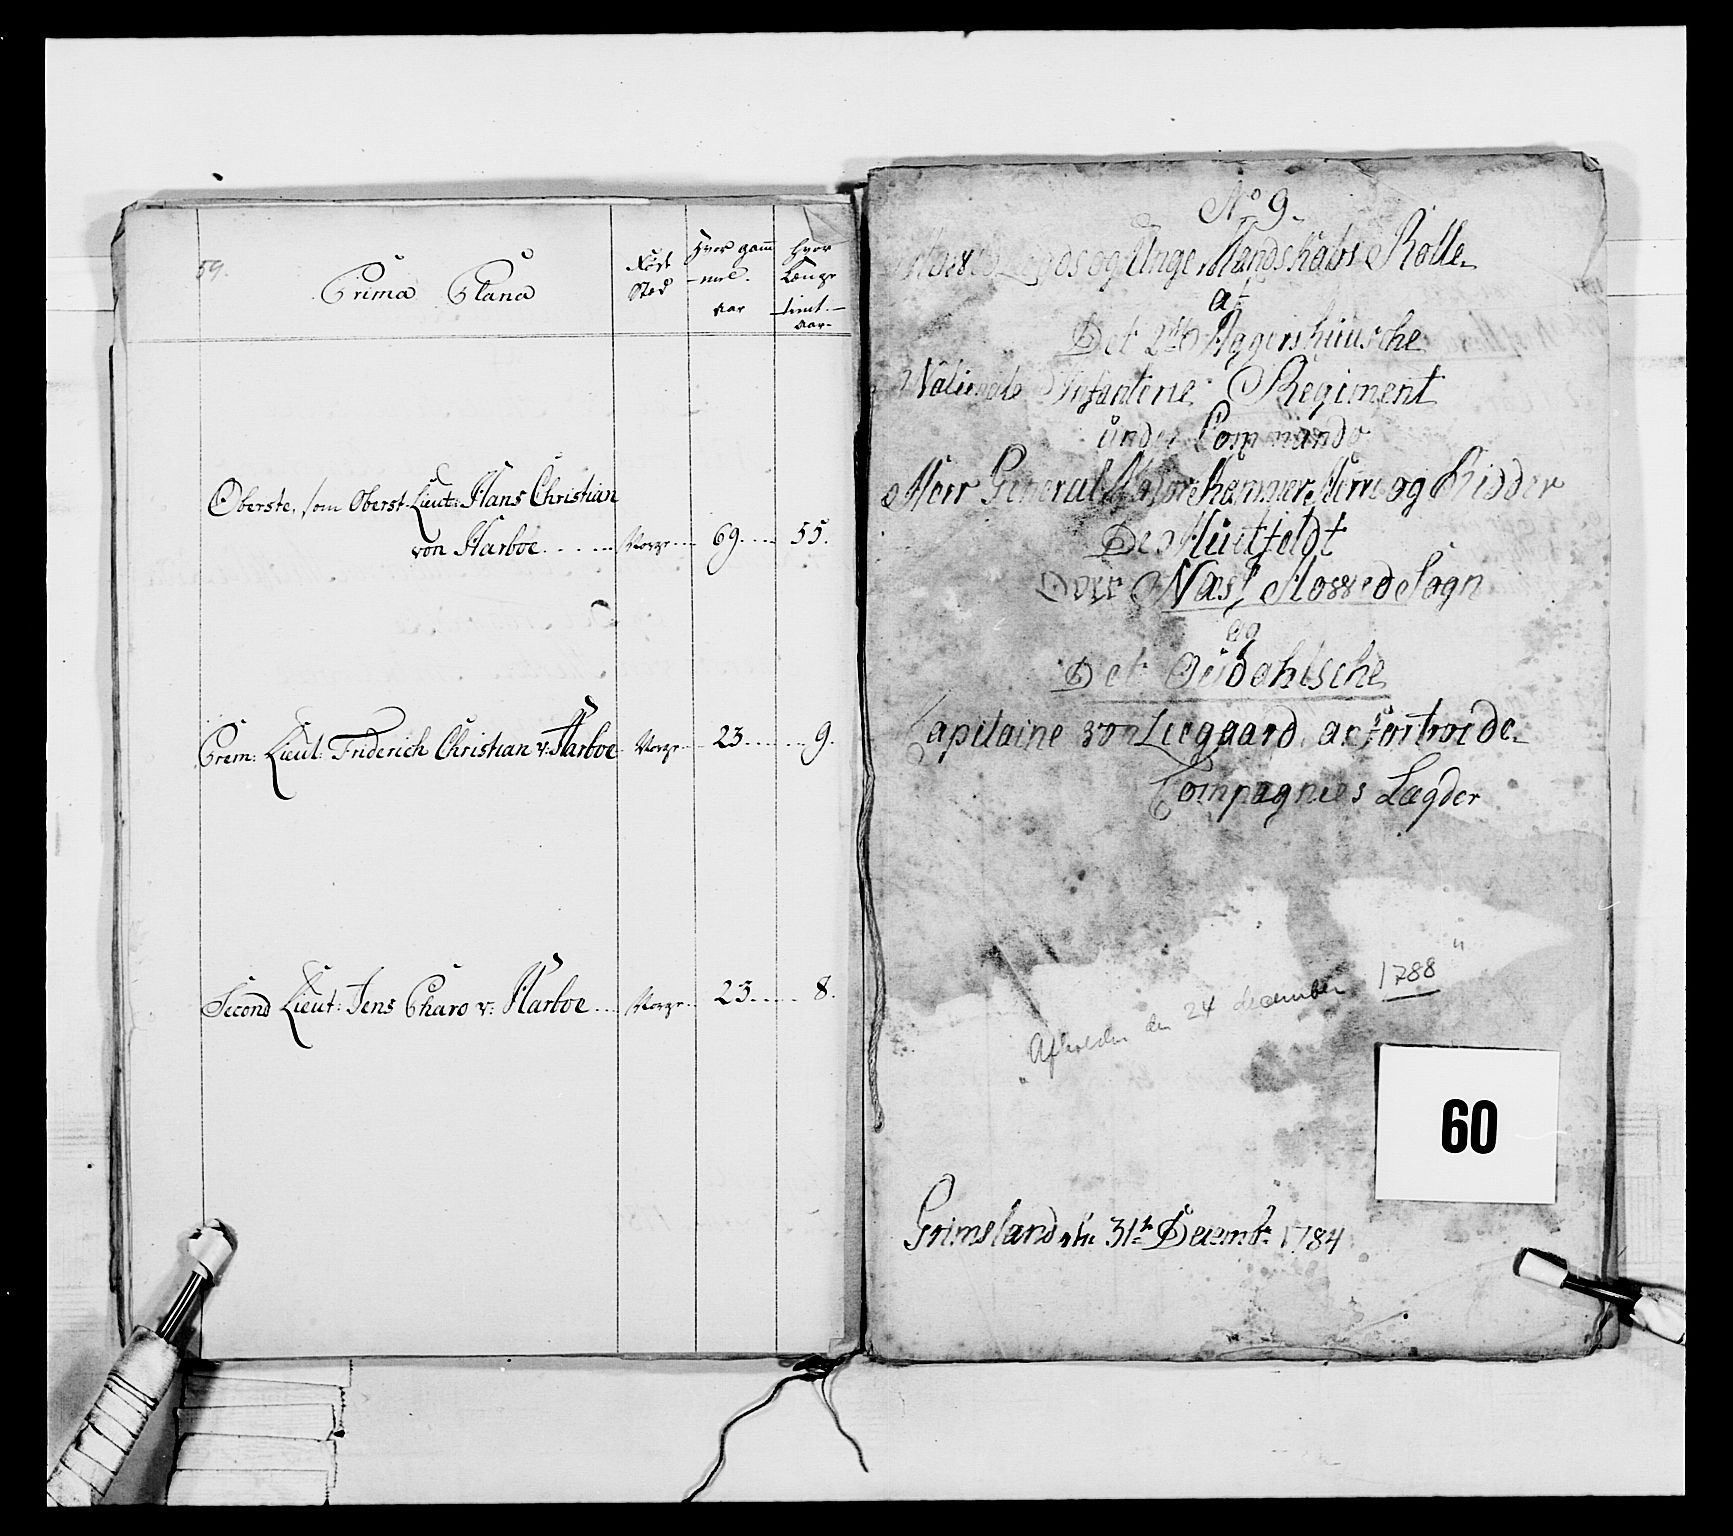 59.
Prima Plana
Fød
Sted
Hvor gam
mel.
aar
hvor
Længe
tient.
aar.
Oberste, som Oberst-Lieut: Hans Christian
von Harboe ...... Norge ... 69 .... 55.
Prem: Lieut: Friderich Christian v: Harboe. Norge ... 23 ...... 9.
Second Lieut: Jens Charo v: Harboe ... Norge ... 23 ..... 8.
No 9.
og Unge Mandskabs Rolle
af
Det 2de Aggershuusche
Nationale Infanterie Regiment
under Commando
Herr General Major Kammer Herre og Ridder
De Huitfeldt
Over Næs
Sogn
og
Det
Capitaine von Liegaard anfortroede
Compagnies Lægder
"Afleveden den 24 december 1788"
60
Grimsland d: 31te Decembr: 1784